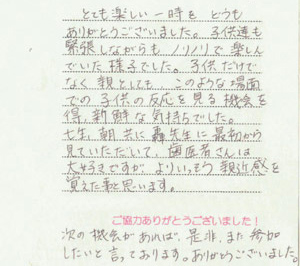 とても楽しい一時を どうも
ありがとうございました。子供達も
緊張しながらも ノリノリで 楽しん
でいた様子でした。子供だけで
なく 親としても このような場面
での子供の反応を見る機会を
得、新鮮な気持ちでした。
七生、朝共に 轟先生に最初から
見ていただいて、歯医者さんは
大好きですが よりいっそう 親近感を
覚えた事と思います。
ご協力ありがとうございました！
次の機会があれば、是非、また参加
したいと言っております。ありがとうございました。